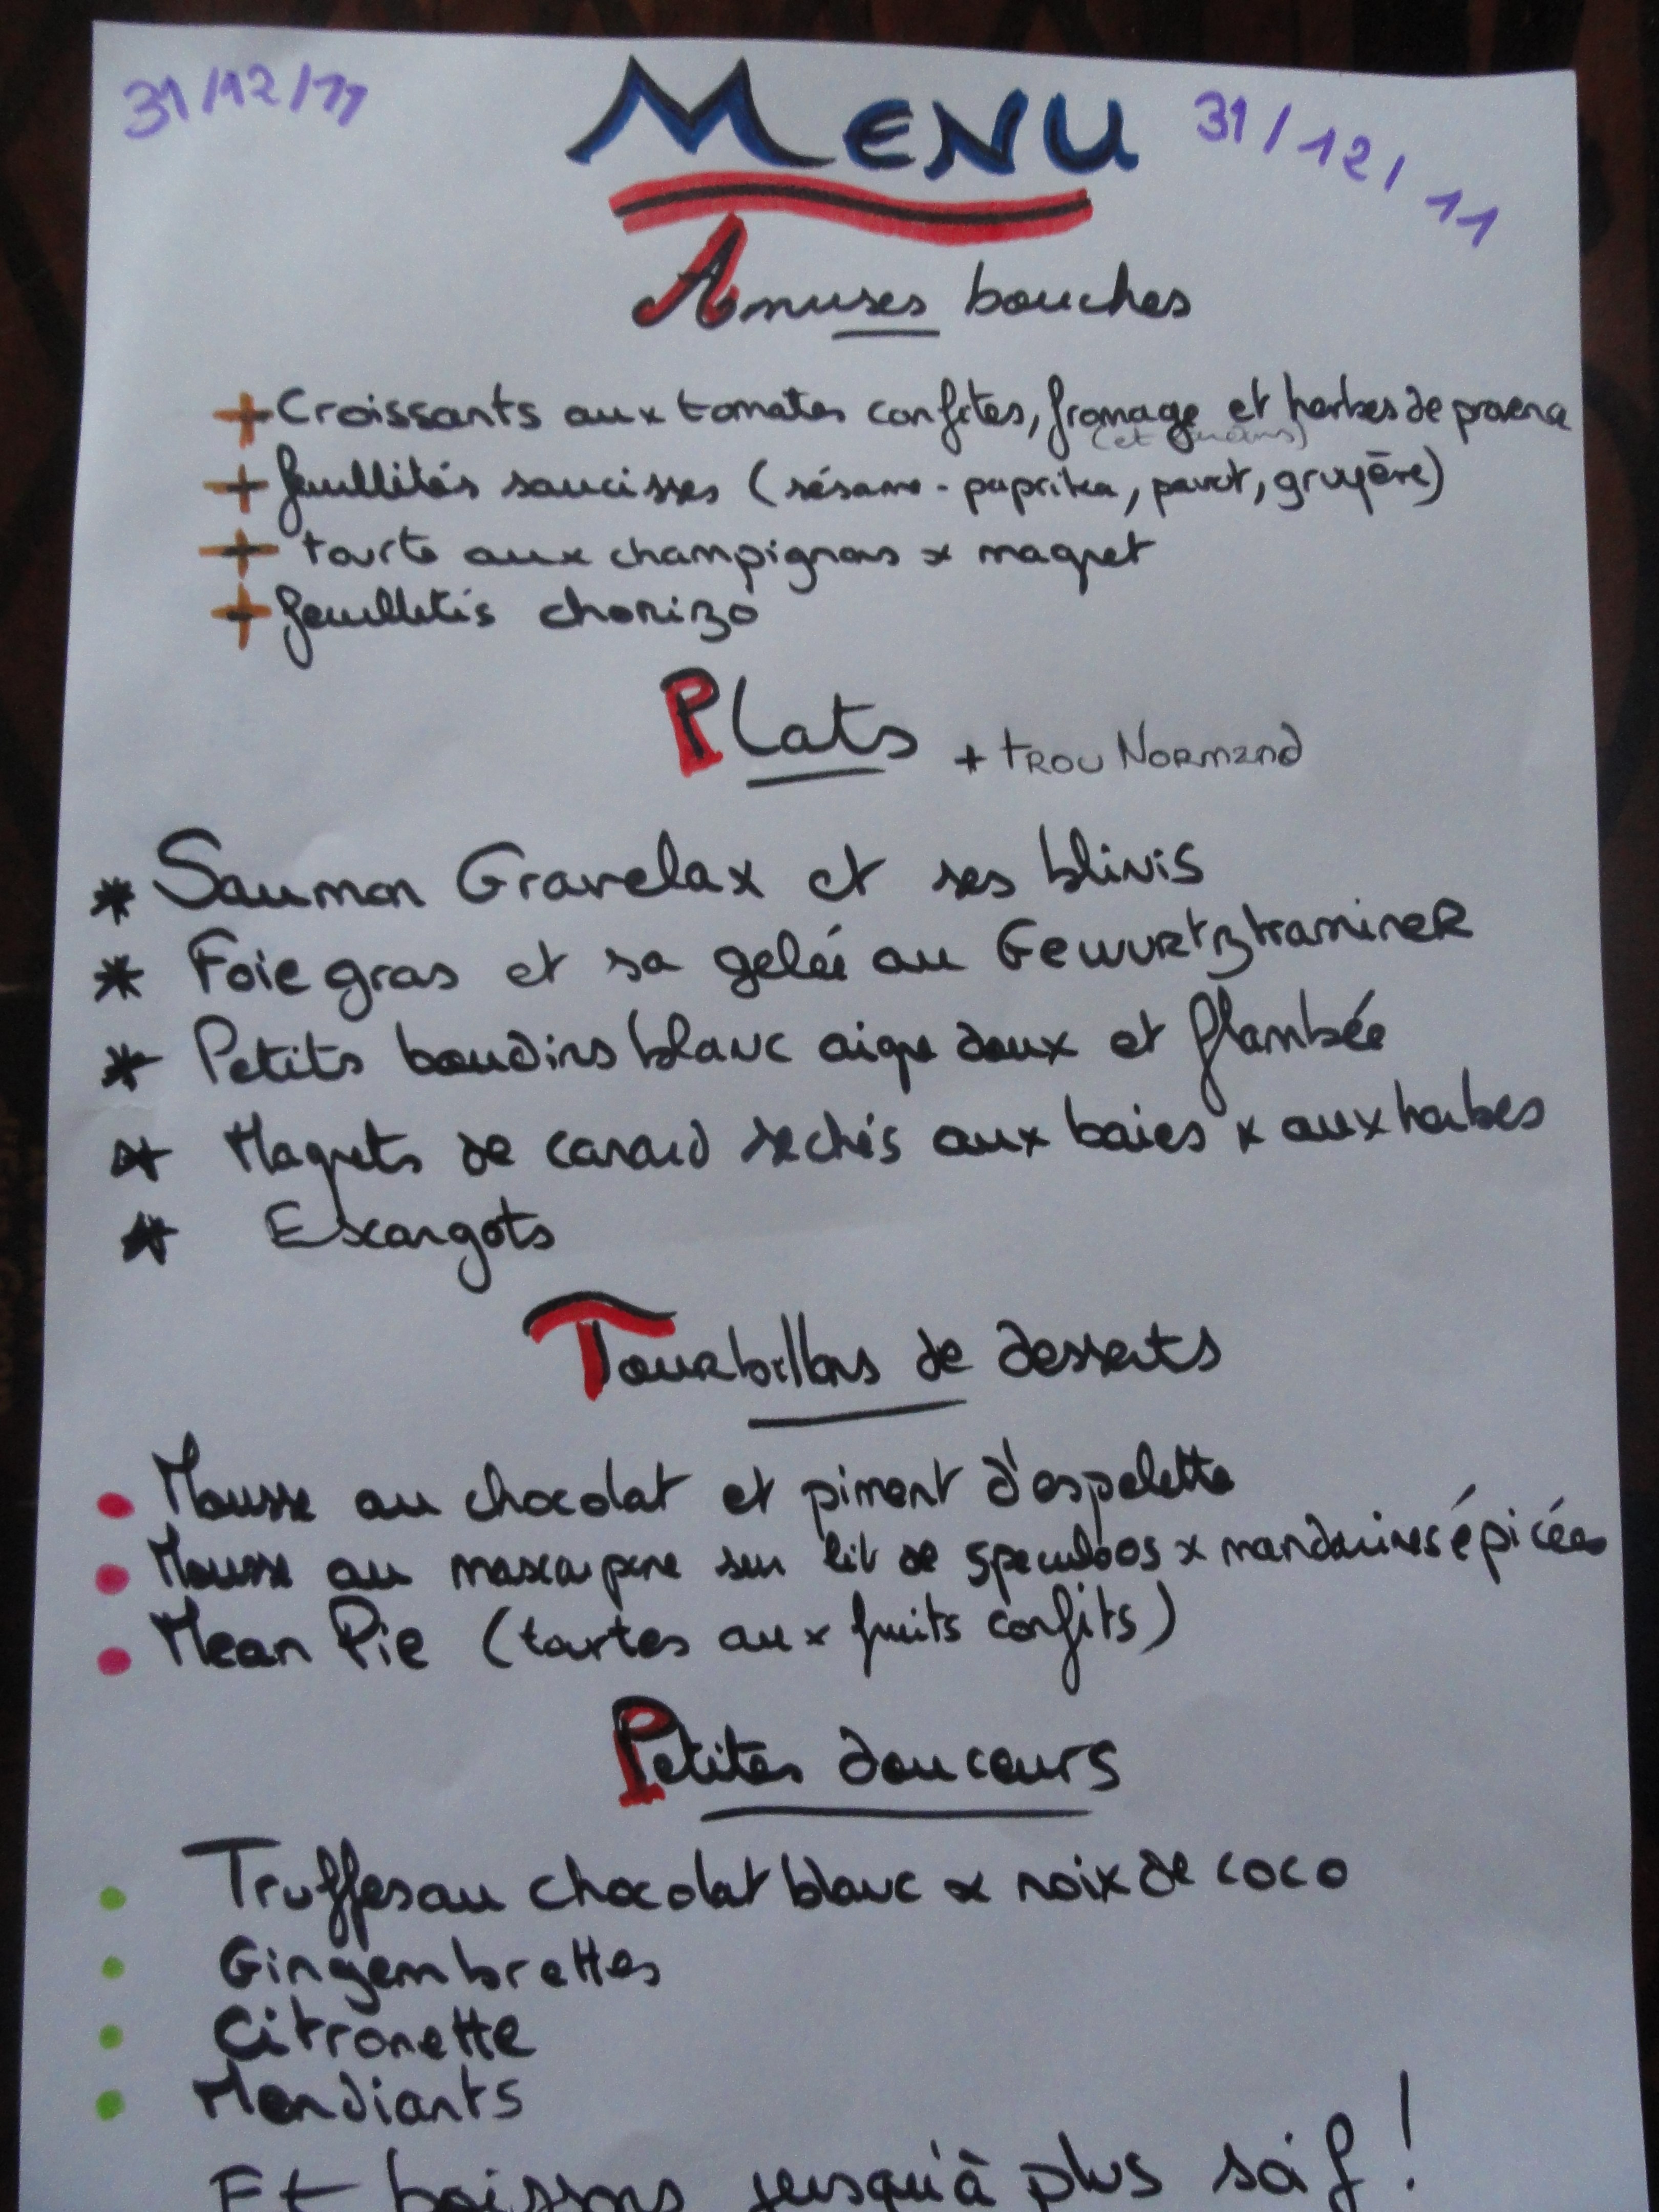 31/12/11 MENU 31/12/11
Amuses bouches
+ Croissants aux tomates confites, fromage et herbes de provence
(et
+ feuilletés saucisses (sésame - paprika, pavot, gruyère)
+ tourte aux champignons x magret
+ feuilletés chorizo
Plats + TROU NORMAND
* Saumon Gravelax et ses blinis
* Foie gras et sa gelée au Gewurtztraminer
* Petits boudins blanc aigre doux et flambée
* Magrets de canard séchés aux baies x aux herbes
* Escargots
Tourbillons de desserts
• Mousse au chocolat et piment d'espelette
• Mousse au mascarpone sur lit de speculoos x mandarines épicées
• Mean Pie (tartes aux fruits confits)
Petites douceurs
• Truffes au chocolat blanc & noix de coco
• Gingembrettes
• Citronette
• Mendiants
Et boissons jusqu'à plus soif !